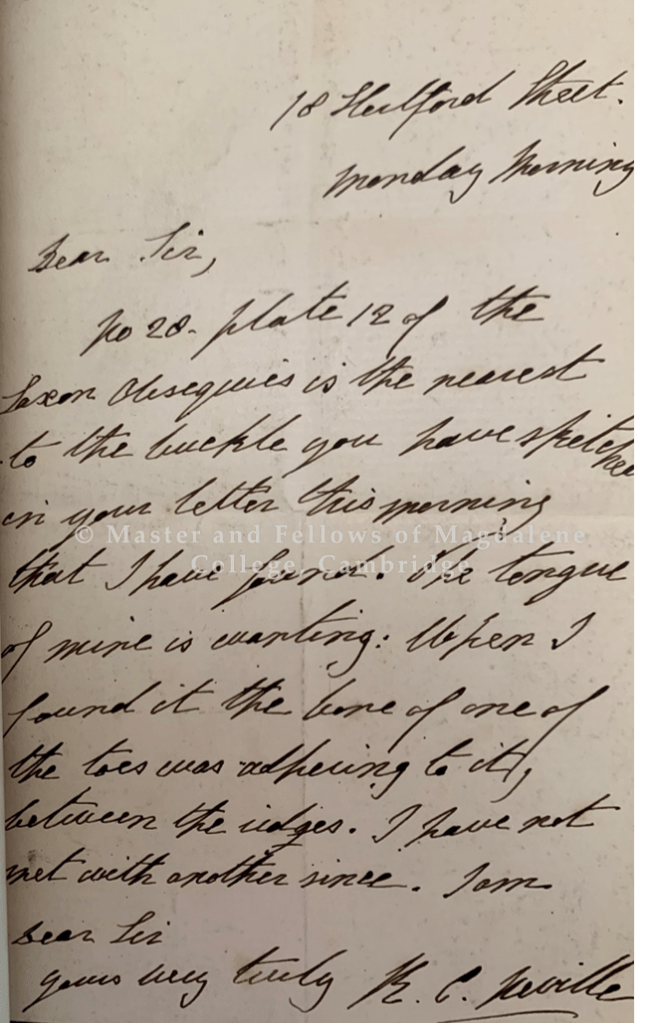 18 Hertford Street.
Monday Morning
Dear Sir,
No 28. plate 12 of the
Saxon Obsequies is the nearest
to the buckle you have sketched
in your letter this morning
© Master and Fellows of Magdalene
College, Cambridge
that I have found. The tongue
of mine is wanting: When I
found it the bone of one of
the toes was adhering to it,
between the edges. I have not
met with another since. I am
Dear Sir
yours very truly R. C. Neville